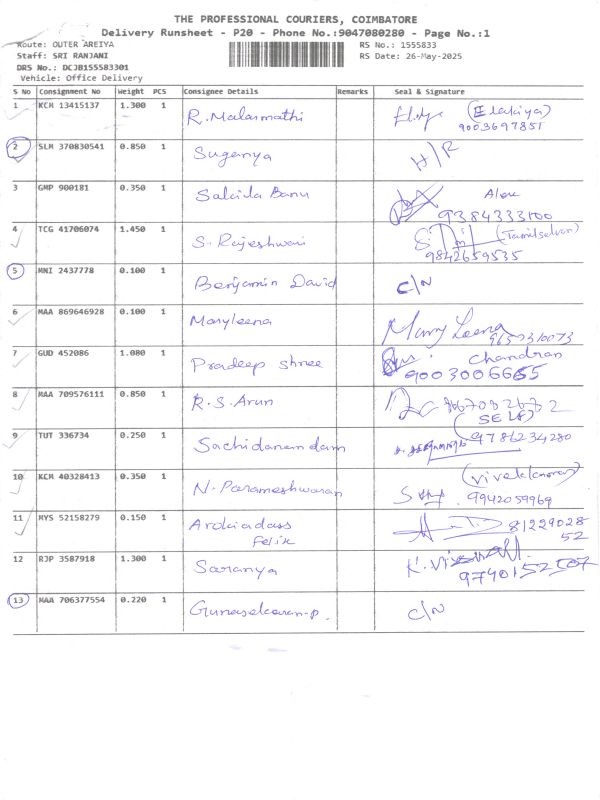 THE PROFESSIONAL COURIERS, COIMBATORE
Delivery Runsheet - P20 - Phone No.:9047080280 - Page No.:1
Route: OUTER AREIYA RS No.: 1555833
Staff: SRI RANJANI RS Date: 26-May-2025
DRS No.: DCJB155583301
Vehicle: Office Delivery
S No Consignment No Weight PCS Consignee Details Remarks Seal & Signature
1 KCM 13415137 1.300 1 R. Malarmathi (Elakiya)
9003697851
2 SLM 370830541 0.850 1 Suganya H/R
3 GMP 900181 0.350 1 Sakila Banu
9384333100
4 TCG 41706074 1.450 1 S. Rajeshwari (Tamilselvan)
9842659535
5 MNI 2437778 0.100 1 Benjamin David C/N
6 MAA 869646928 0.100 1 Maryleena Mary Leena
7 GUD 452086 1.080 1 Pradeep shree Chandran
9003006665
8 MAA 709576111 0.850 1 R.S. Arun
(SELF)
9 TUT 336734 0.250 1 Sachidanandam 9786234280
10 KCM 40328413 0.350 1 N. Parameshwaran
9942059969
11 MYS 52158279 0.150 1 Arokiadass 81229028
Felix 52
12 RJP 3587918 1.300 1 Saranya
13 MAA 706377554 0.220 1 Gunasekaran.p. C/N